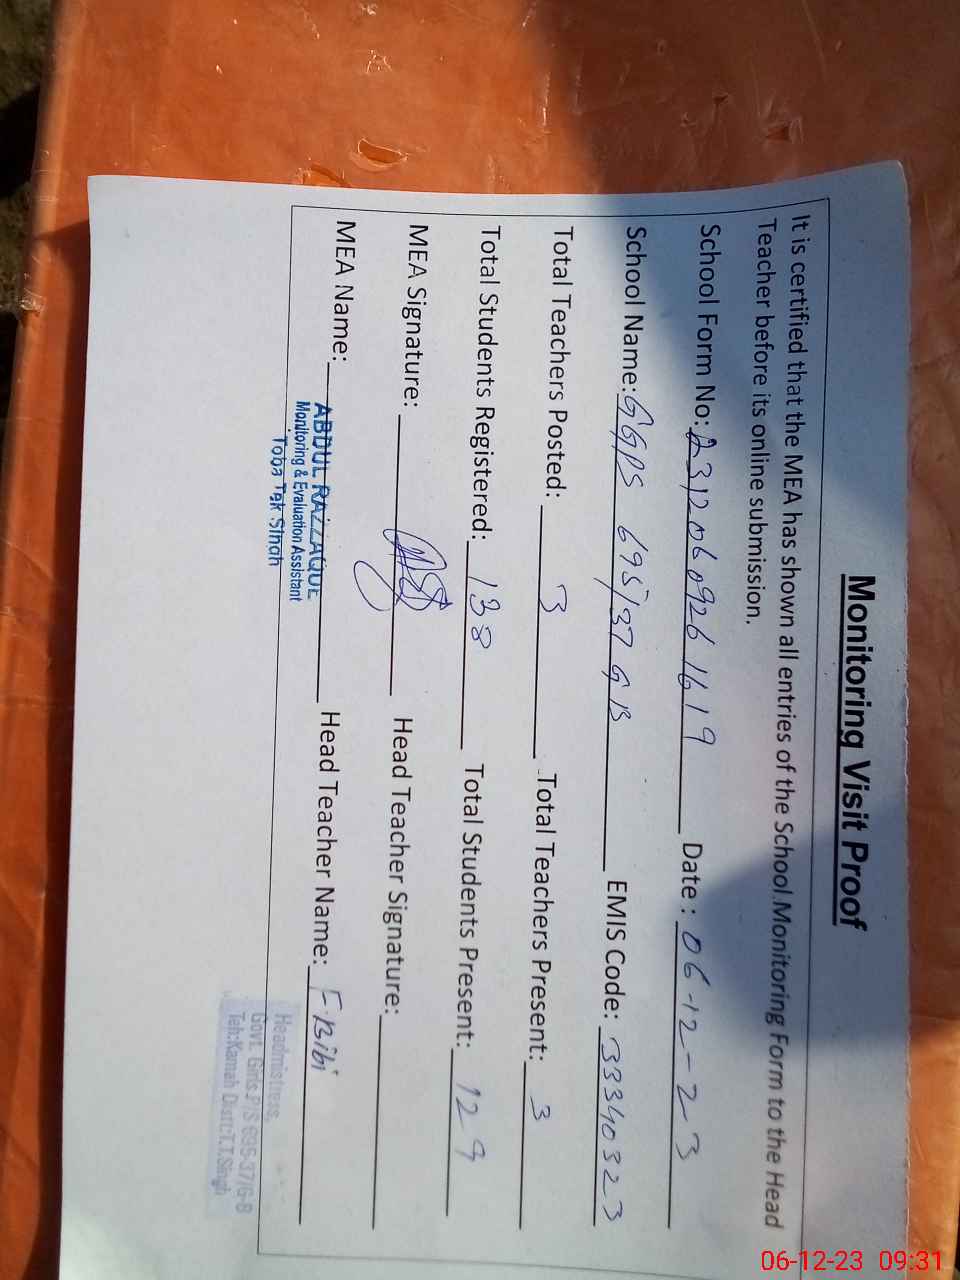 Monitoring Visit Proof
It is certified that the MEA has shown all entries of the School Monitoring Form to the Head
Teacher before its online submission.
School Form No: 231206092616 19 Date : 06-12-23
School Name: GGPS 695/37 GB EMIS Code: 33340323
Total Teachers Posted: 3 Total Teachers Present: 3
Total Students Registered: 138 Total Students Present: 129
MEA Signature: Head Teacher Signature:
MEA Name: ABDUL RAZZAQUE Head Teacher Name: F.Bibi
Monitoring & Evaluation Assistant
Toba Tek Singh
Headmistress,
Govt. Girls P/S 695-37/G-B
Teh:Kamali Distt:T.T.Singh
06-12-23 09:31